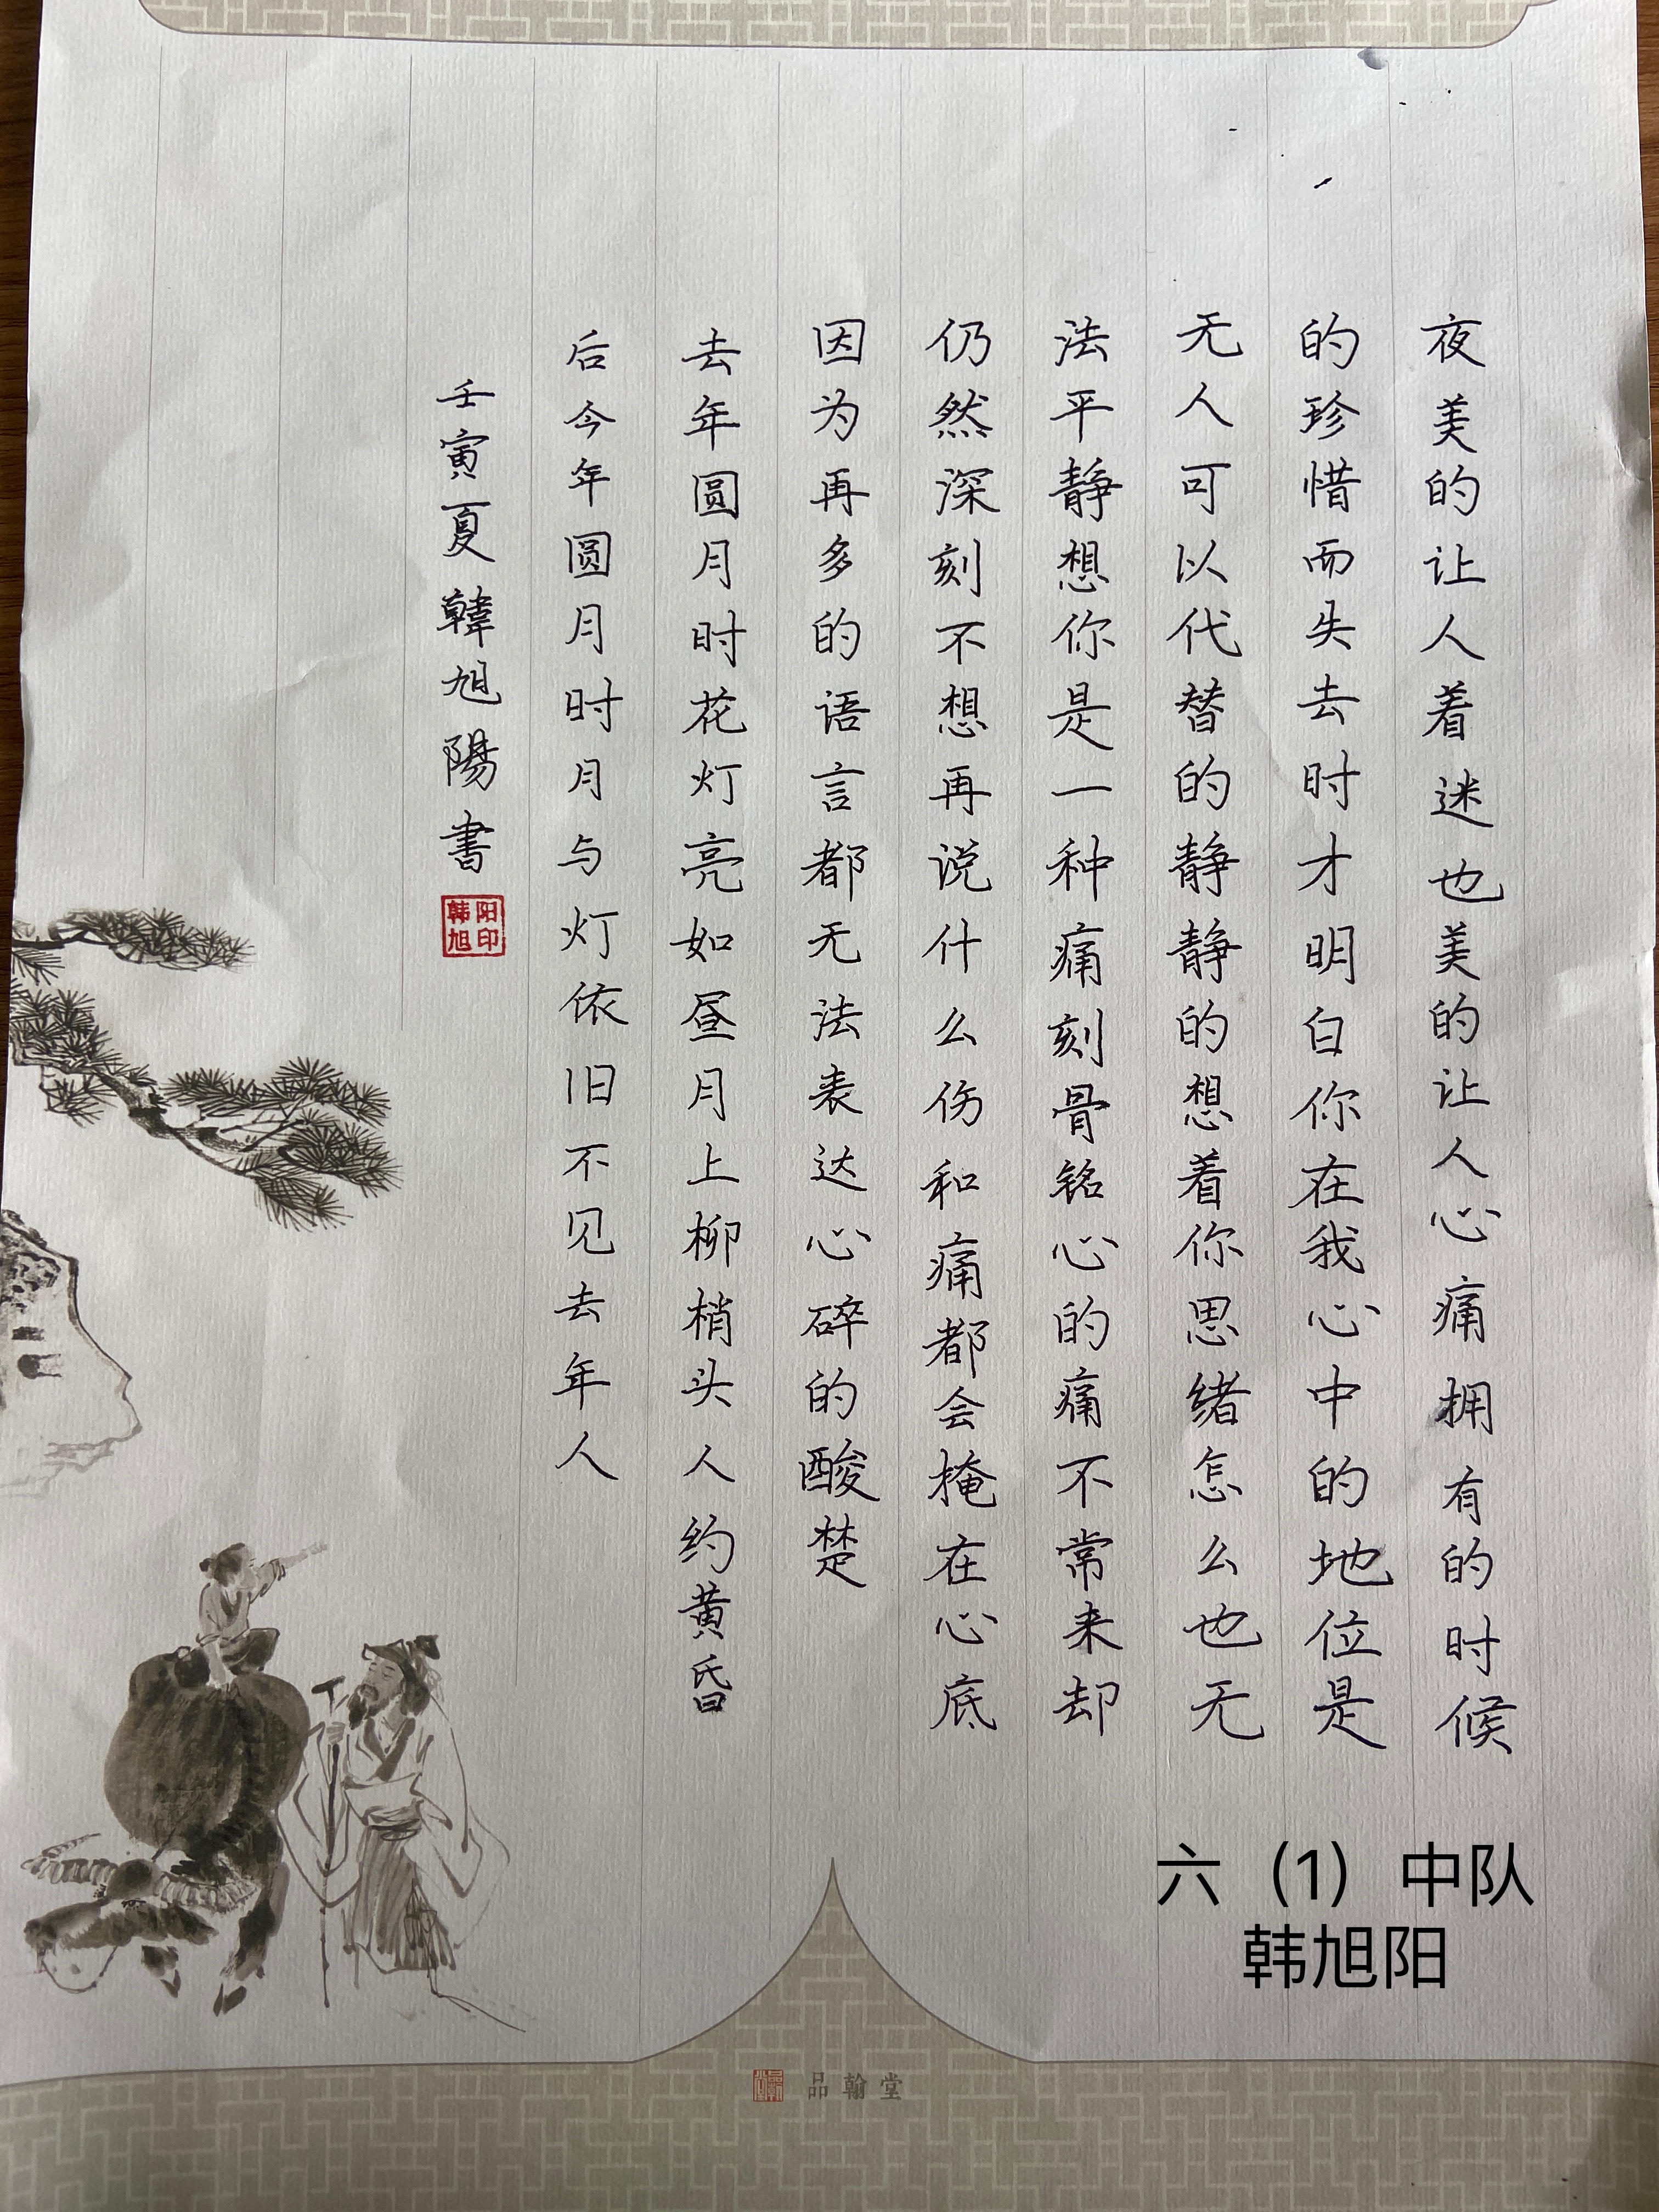 夜美的让人着迷也美的让人心痛拥有的时候
的珍惜而失去时才明白你在我心中的地位是
无人可以代替的静静的想着你思绪怎么也无
法平静想你是一种痛刻骨铭心的痛不常来却
仍然深刻不想再说什么伤和痛都会掩在心底
因为再多的语言都无法表达心碎的酸楚
去年圆月时花灯亮如昼月上柳梢头人约黄昏
后今年圆月时月与灯依旧不见去年人
壬寅夏韓旭陽書
韩旭阳印
六（1）中队
韩旭阳
品翰堂